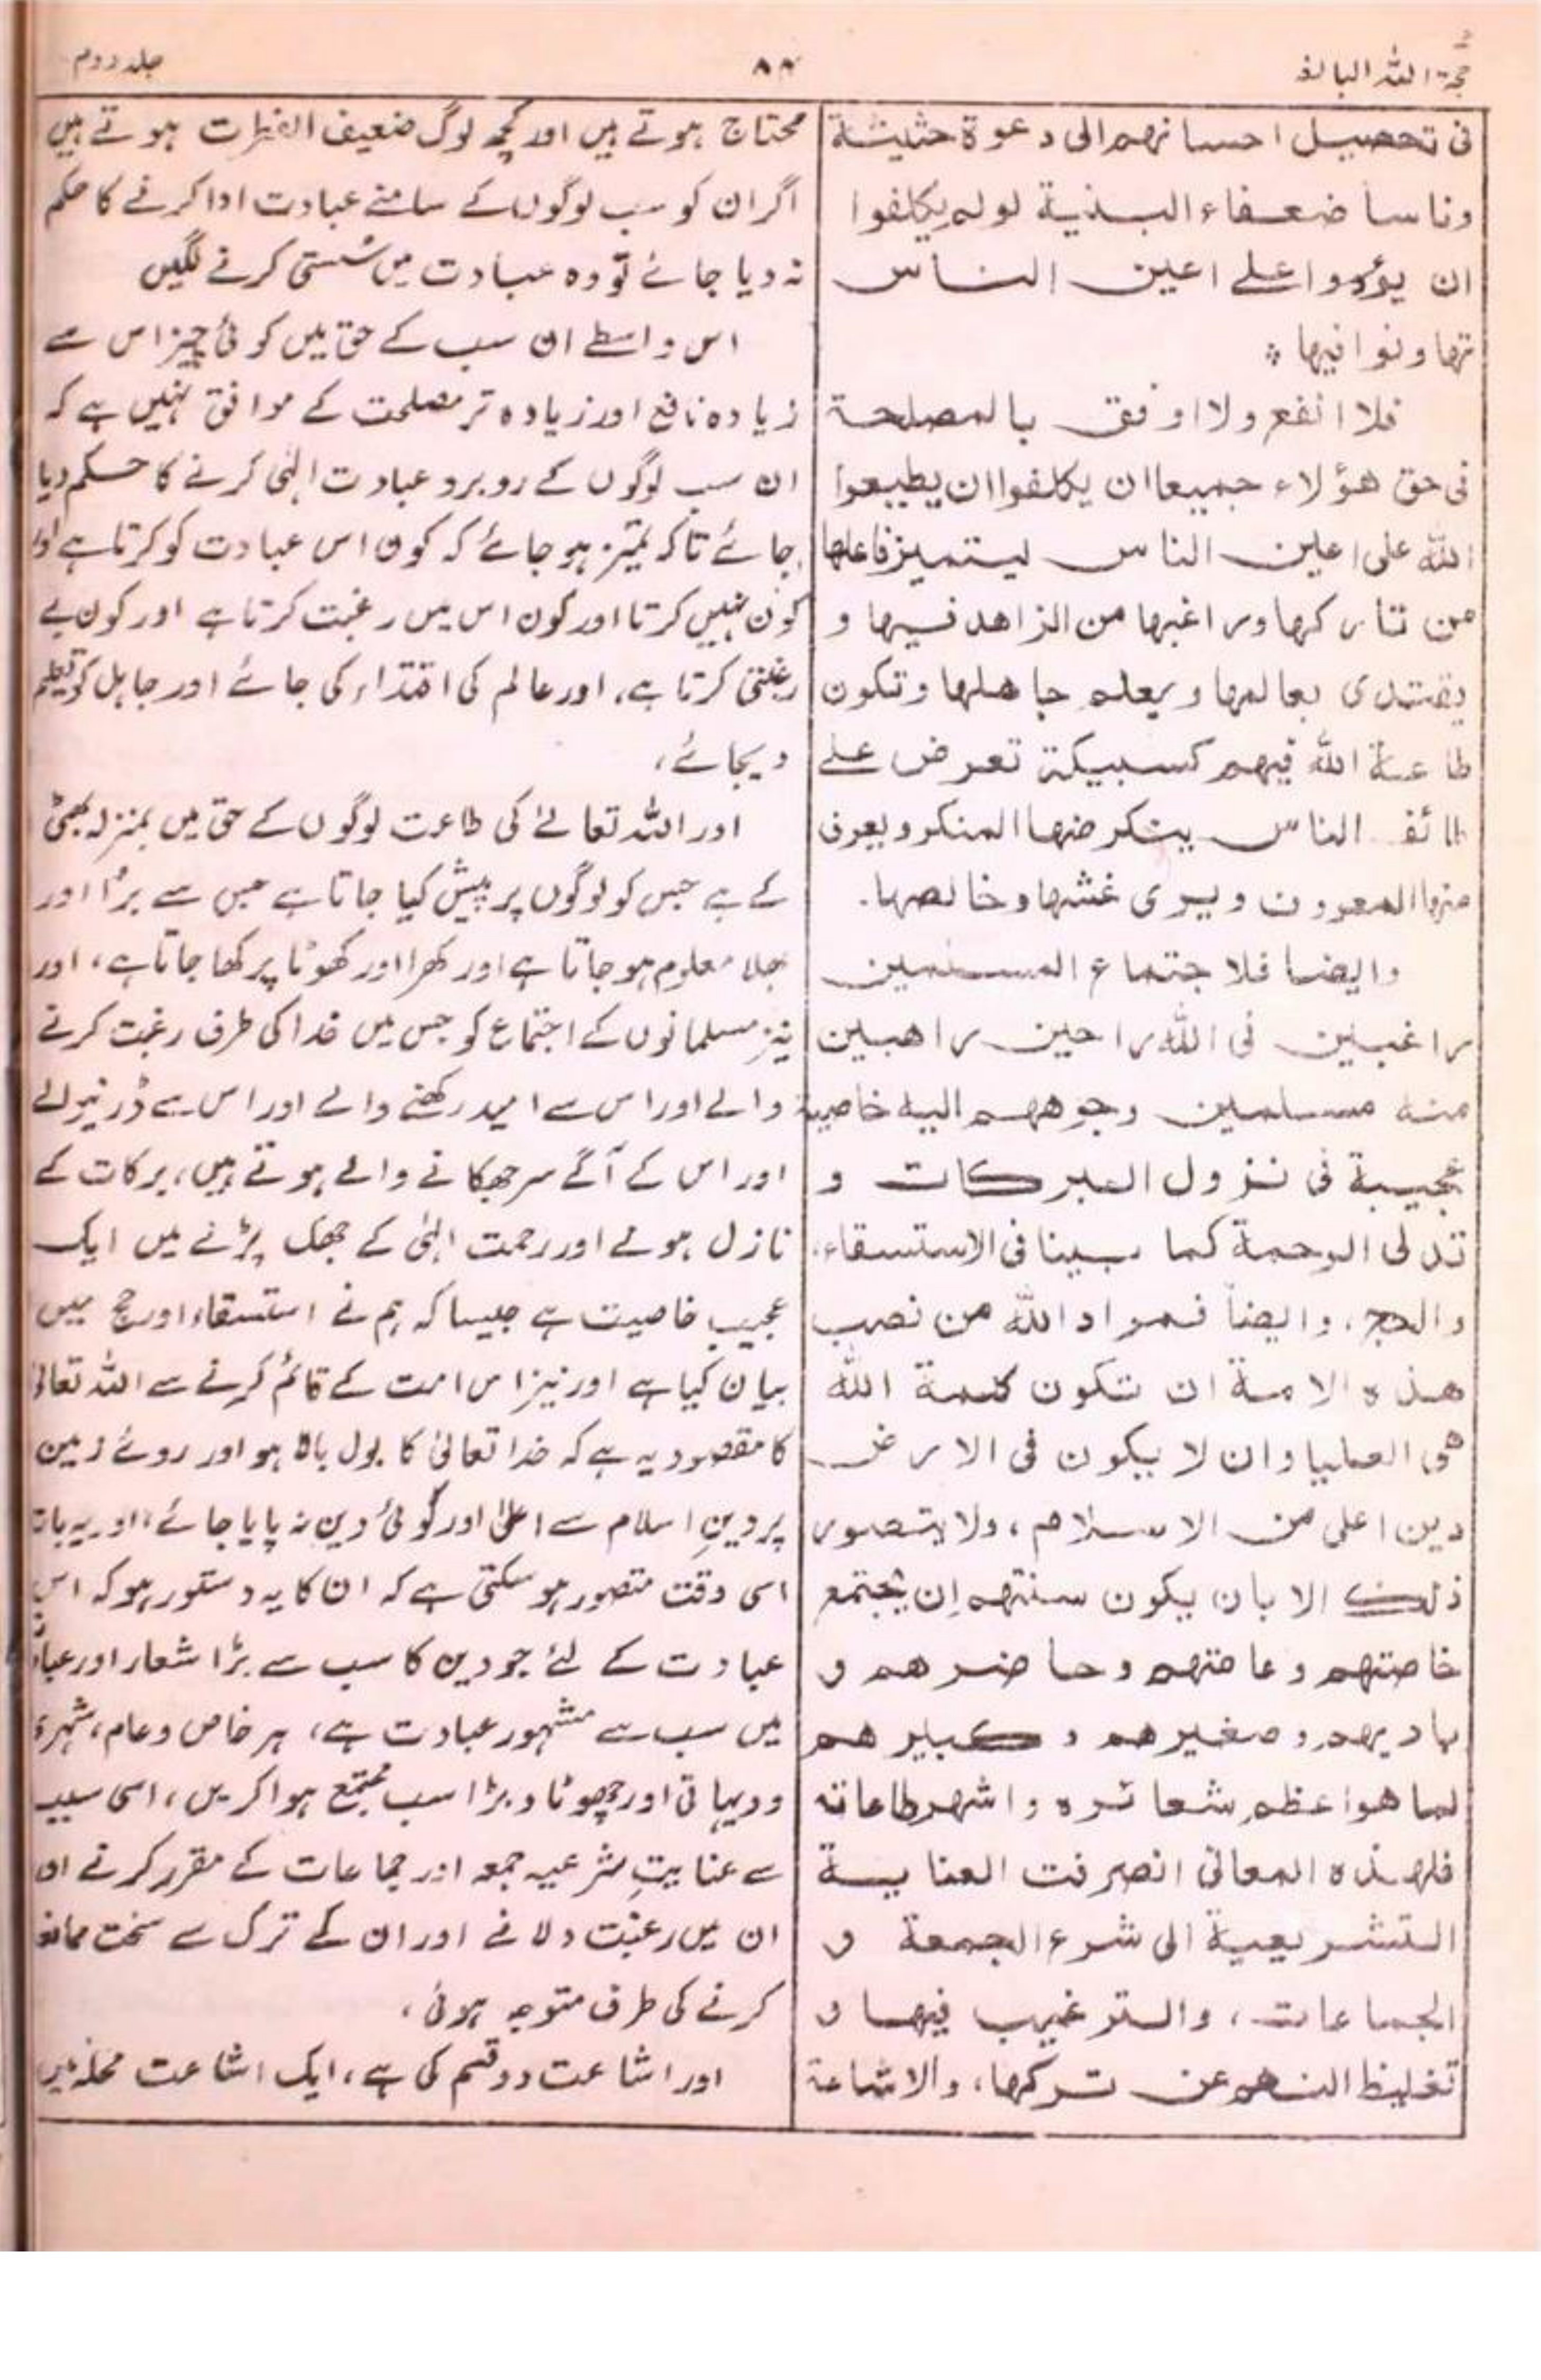 حجۃ اللہ البالغہ
جلد دوم
فی تحصیل احسانہم الی دعوة حثیثة
وناسا ضعفاء البنیة لو لم یکلفوا
ان یؤدوا علے اعین الناس
تھاونوا فیہا
فلا انفع ولا اوفق بالمصلحة
فی حق هؤلاء جمیعا ان یکلفوا ان یطیعوا
اللہ علی اعین الناس لیتمیز فاعلها
من تارکها وراغبها من الزاهد فیها و
یقتدی بعالمها و یعلم جاهلها وتکون
طاعة اللہ فیهم کسبیکة تعرض علے
طائف الناس ینکر منها المنکر ویعرف
منها المعروف ویری غشها وخالصها۔
وایضا فلاجتماع المسلمین
راغبین فی اللہ راجین راهبین
منه مسلمین وجوههم الیه خاصیة
عجیبة فی نزول البرکات و
تدلی الرحمة کما بینا فی الاستسقاء،
والحج، وایضاً فمراد اللہ من نصب
هذه الامة ان تکون کلمة اللہ
هی العلیا وان لا یکون فی الارض
دین اعلی من الاسلام، ولا یتصور
ذلک الا بان یکون سنتهم ان یجتمع
خاصتهم وعامتهم وحاضرهم و
بادیهم وصغیرهم و کبیرهم
لما هو اعظم شعائره واشهر طاعاته
فلهذه المعانی انصرفت العنایة
التشریعیة الی شرع الجمعة و
الجماعات، والترغیب فیها و
تغلیظ النهی عن ترکها، والاشاعة
محتاج ہوتے ہیں اور کچھ لوگ ضعیف الفطرات ہوتے ہیں
اگر ان کو سب لوگوں کے سامنے عبادت ادا کرنے کا حکم
نہ دیا جائے تو وہ عبادت میں سُستی کرنے لگیں
اس واسطے ان سب کے حق میں کوئی چیز اس سے
زیادہ نافع اور زیادہ تر مصلحت کے موافق نہیں ہے کہ
ان سب لوگوں کے روبرو عبادت الٰہی کرنے کا حکم دیا
جائے تاکہ تمیز ہو جائے کہ کون اس عبادت کو کرتا ہے اور
کون نہیں کرتا اور کون اس میں رغبت کرتا ہے اور کون بے
رغبتی کرتا ہے، اور عالم کی اقتداء کی جائے اور جاہل کو تعلیم
دیجائے،
اور اللہ تعالےٰ کی طاعت لوگوں کے حق میں بمنزلہ بھٹی
کے ہے جس کو لوگوں پر پیش کیا جاتا ہے جس سے بُرا اور
بھلا معلوم ہو جاتا ہے اور کھرا اور کھوٹا پرکھا جاتا ہے، اور
نیز مسلمانوں کے اجتماع کو جس میں خدا کی طرف رغبت کرنے
والے اور اس سے امید رکھنے والے اور اس سے ڈرنیوالے
اور اس کے آگے سر جھکانے والے ہوتے ہیں، برکات کے
نازل ہونے اور رحمت الٰہی کے جھک پڑنے میں ایک
عجیب خاصیت ہے جیسا کہ ہم نے استسقاء اور حج میں
بیان کیا ہے اور نیز اس امت کے قائم کرنے سے اللہ تعالیٰ
کا مقصود یہ ہے کہ خدا تعالیٰ کا بول بالا ہو اور روئے زمین
پر دینِ اسلام سے اعلیٰ اور کوئی دین نہ پایا جائے، اور یہ بات
اسی وقت متصور ہو سکتی ہے کہ ان کا یہ دستور ہو کہ اس
عبادت کے لئے جو دین کا سب سے بڑا شعار اور عبادت
میں سب سے مشہور عبادت ہے، ہر خاص و عام، شہری
و دیہاتی اور چھوٹا و بڑا سب مجتمع ہوا کریں، اسی سبب
سے عنایتِ شرعیہ جمعہ اور جماعات کے مقرر کرنے اور
ان میں رغبت دلانے اور ان کے ترک سے سخت ممانعت
کرنے کی طرف متوجہ ہوئی،
اور اشاعت دو قسم کی ہے، ایک اشاعت محلہ میں